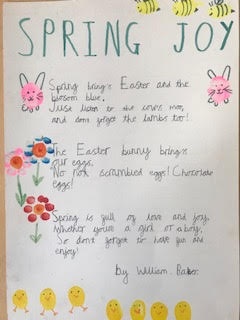 SPRING JOY
Spring bring's Easter and the
blossom blue,
Just listen to the cows moo,
and don't forget the lambs too!
The Easter bunny bring's
our eggs,
No not scrambled eggs! Chocolate
eggs!
Spring is full of love and joy,
Whether you're a girl or a boy,
So don't forget to have fun and
enjoy!
by William. Baker.